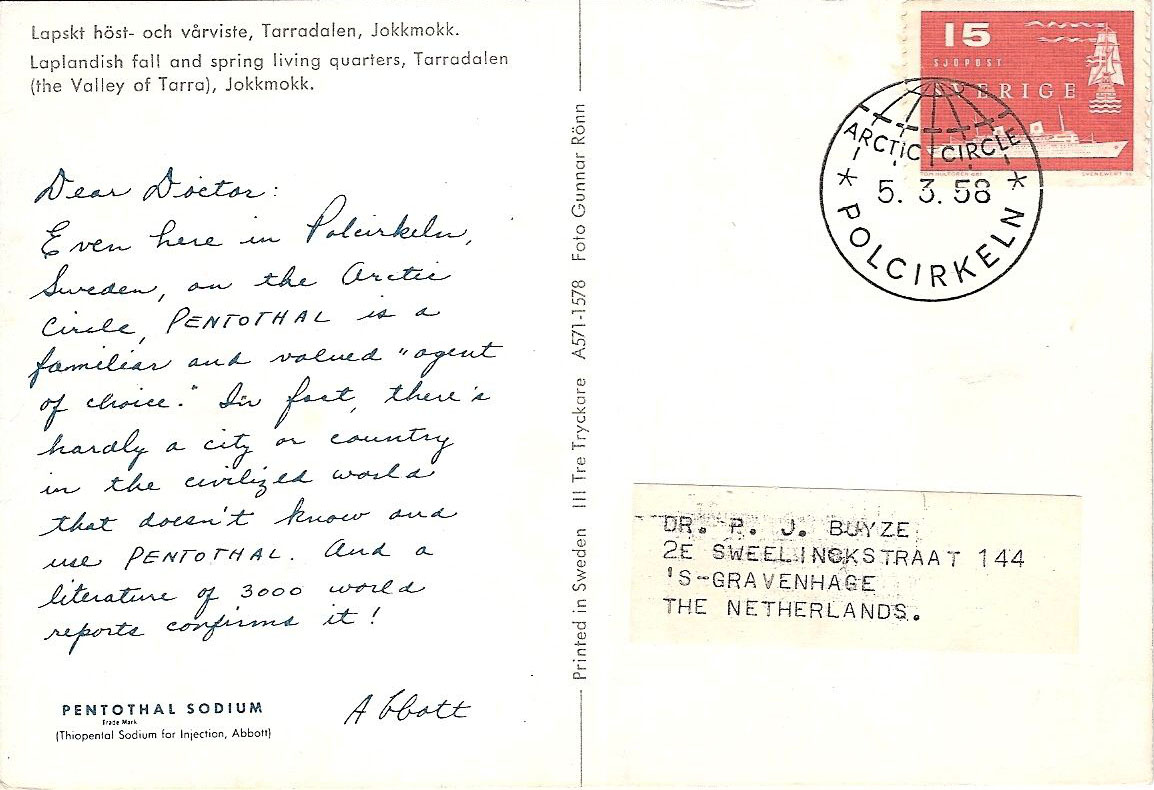 Lapskt höst- och vårviste, Tarradalen, Jokkmokk.
Laplandish fall and spring living quarters, Tarradalen
(the Valley of Tarra), Jokkmokk.
Dear Doctor:
Even here in Polcirkeln,
Sweden, on the Arctic
Circle, PENTOTHAL is a
familiar and valued "agent
of choice." In fact, there's
hardly a city or country
in the civilized world
that doesn't know and
use PENTOTHAL. And a
literature of 3000 world
reports confirms it!
Abbott
PENTOTHAL SODIUM
Trade Mark
(Thiopental Sodium for Injection, Abbott)
Printed in Sweden III Tre Tryckare A571-1578 Foto Gunnar Rönn
15
SJÖPOST
SVERIGE
ARCTIC CIRCLE
5. 3. 58
POLCIRKELN
DR. P. J. BUYZE
2E SWEELINCKSTRAAT 144
'S-GRAVENHAGE
THE NETHERLANDS.